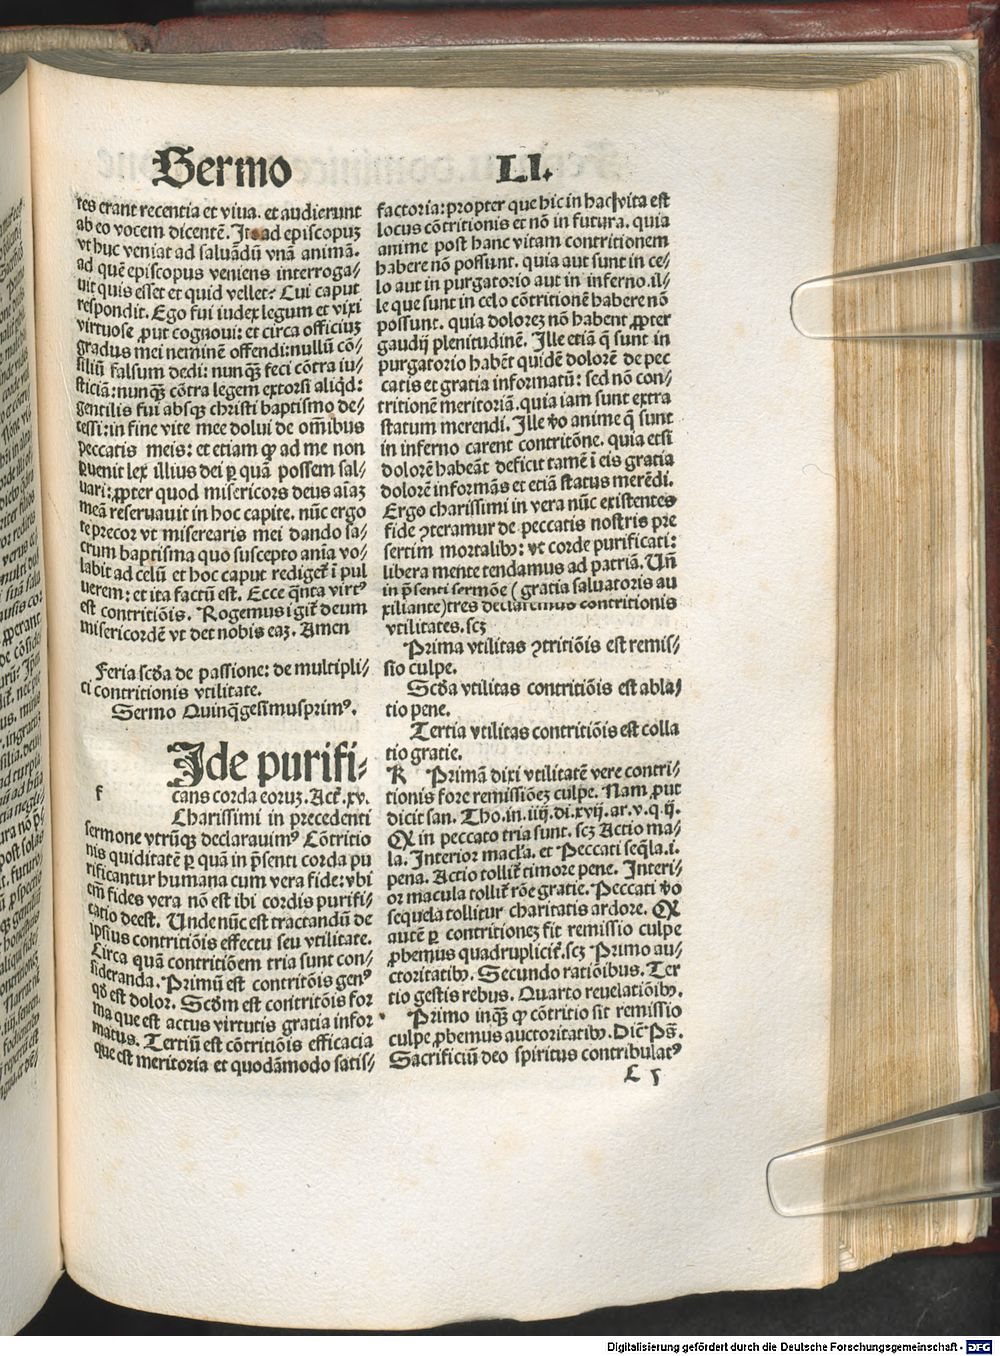 Sermo LI.
tes erant recentia et viua. et audierunt
ab eo vocem dicentē. Ite ad episcopuꝫ
vt huc veniat ad saluādū vnā animā.
ad quē episcopus veniens interroga⸗
uit quis esset et quid vellet? Cui caput
respondit. Ego fui iudex legum et vixi
virtuose ꝓut cognoui: et circa officiuꝫ
gradus mei neminē offendi: nullū cō⸗
siliū falsum dedi: nunqꝫ feci cōtra iu⸗
sticiā: nunqꝫ cōtra legem extorsi aliqd:
gentilis fui absqꝫ christi baptismo de⸗
cessi: in fine vite mee dolui de om̄ibus
peccatis meis: et etiam ꝙ ad me non
ꝑuenit lex illius dei ꝑ quā possem sal⸗
uari: ꝓpter quod misericors deus aīaꝫ
meā reseruauit in hoc capite. nūc ergo
te precor vt miserearis mei dando sa⸗
crum baptisma quo suscepto anīa vo⸗
labit ad celū et hoc caput redigeť ī pul
uerem: et ita factū est. Ecce qͥnta virtꝰ
est contritiōis. Rogemus igiť deum
misericordē vt det nobis eaꝫ. Amen
Feria scďa de passione: de multipli⸗
ci contritionis vtilitate.
Sermo Quinqͣgesimusprimꝰ.
Ide purifi⸗
f cans corda eoruꝫ. Act̄. xv.
Charissimi in precedenti
sermone vtrūqꝫ declarauimꝰ Cōtritio
nis quiditatē ꝑ quā in p̄senti corda pu
rificantur humana cum vera fide: vbi
em̄ fides vera nō est ibi cordis purifi⸗
catio deest. Unde nūc est tractandū de
ipsius contritiōis effectu seu vtilitate.
Circa quā contritiōem tria sunt con⸗
sideranda. Primū est contritōis genꝰ
qď est dolor. Scďm est contritōis for
ma que est actus virtutis gratia infor
matus. Tertiū est cōtritiōis efficacia
que est meritoria et quodāmodo satis⸗
factoria: propter que hic in hac vita est
locus cōtritionis et nō in futura. quia
anime post hanc vitam contritionem
habere nō possunt. quia aut sunt in ce⸗
lo aut in purgatorio aut in inferno. il⸗
le que sunt in celo cōtritionē habere nō
possunt. quia doloreꝫ nō habent ꝓpter
gaudij plenitudinē. Ille etiā q̄ sunt in
purgatorio habēt quidē dolorē de pec
catis et gratia informatū: sed nō con⸗
tritionē meritoriā. quia iam sunt extra
statum merendi. Ille ѷo anime q̄ sunt
in inferno carent contritōne. quia etsi
dolorē habeāt deficit tamē ī eis gratia
dolorē informās et etiā status merēdi.
Ergo charissimi in vera nūc existentes
fide ꝯteramur de peccatis nostris pre
sertim mortalibꝫ: vt corde purificati:
libera mente tendamus ad patriā. Un̄
in p̄senti sermōe (gratia saluatoris au
xiliante) tres declarimus contritionis
vtilitates. scꝫ
Prima vtilitas ꝯtritiōis est remis⸗
sio culpe.
Scďa vtilitas contritiōis est abla⸗
tio pene.
Tertia vtilitas contritiōis est colla
tio gratie.
K Primā dixi vtilitatē vere contri⸗
tionis fore remissiōeꝫ culpe. Nam ꝓut
dicit san. Tho. in. iiij. di. xvij. ar. v. q. ij.
Qꝛ in peccato tria sunt. scꝫ Actio ma⸗
la. Interior macl̄a. et Peccati seq̄la. i.
pena. Actio tolliť timore pene. Interi⸗
or macula tolliť rōe gratie. Peccati ѷo
sequela tollitur charitatis ardore. Qꝛ
autē ꝑ contritioneꝫ fit remissio culpe
ꝓbemus quadrupliciť. scꝫ Primo au⸗
ctoritatibꝫ. Secundo ratiōibus. Ter
tio gestis rebus. Quarto reuelatiōibꝫ.
Primo inqͣꝫ ꝙ cōtritio sit remissio
culpe ꝓbemus auctoritatibꝫ. Dic̄ Ps̄.
Sacrificiū deo spiritus contribulatꝰ
L 5
Digitalisierung gefördert durch die Deutsche Forschungsgemeinschaft - DFG